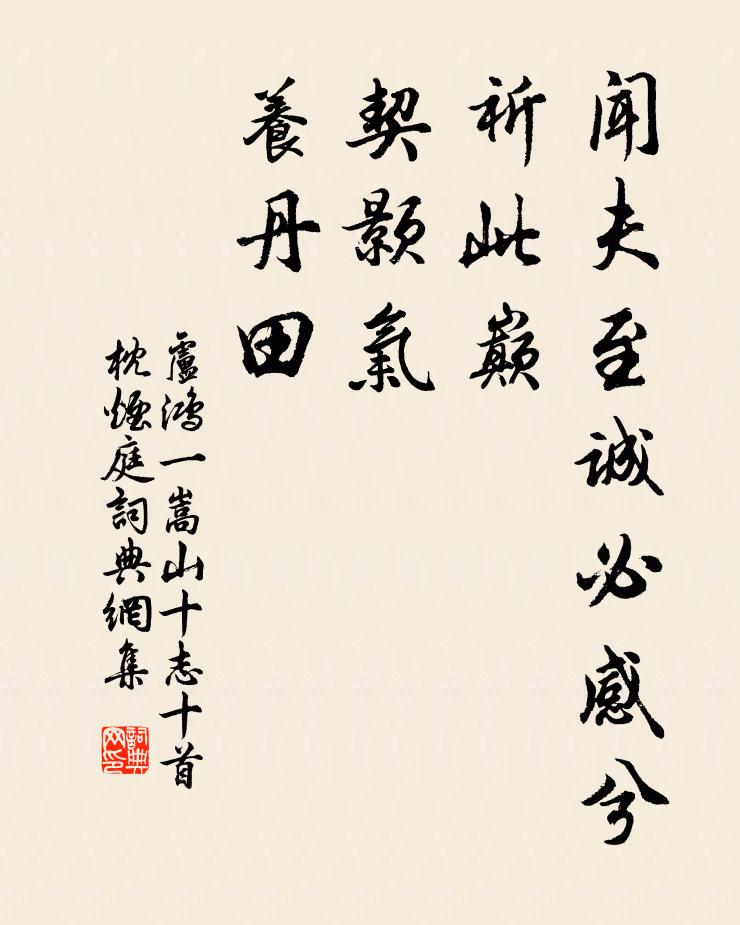 聞夫至誠必感兮
祈此巔
契顥氣
養丹田
盧鴻一嵩山十志十首
枕煙庭詞典網集
詞典网印